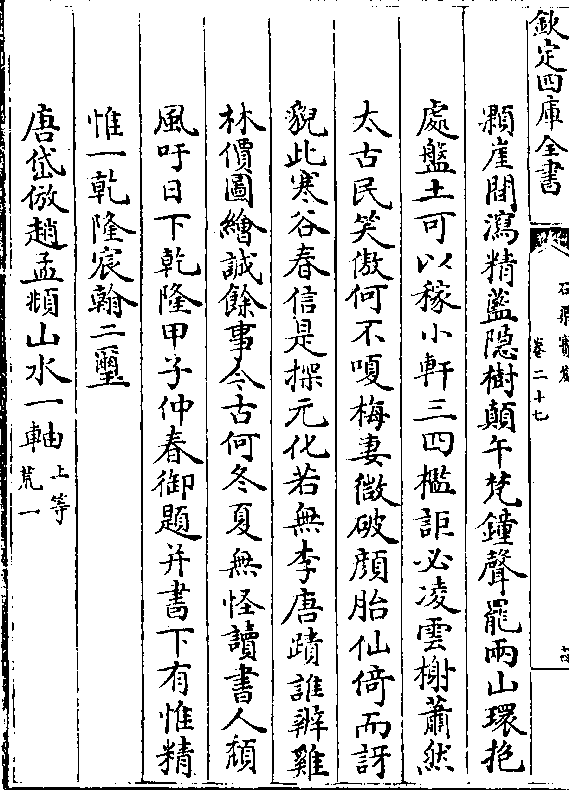 欽定四庫全書
石渠寶笈
卷二十七
顆崖間瀉精藍隐樹顛午梵鐘聲罷兩山環抱
處盤土可以稼小軒三四檻詎必凌雲榭蕭然
太古民笑傲何不嗄梅妻微破顔胎仙倚而訝
貌此寒谷春信是探元化若無李唐蹟誰辨雞
林價圖繪誠餘事今古何冬夏無怪讀書人頽
風吁日下乾隆甲子仲春御題并書下有惟精
惟一乾隆宸翰二璽
唐岱倣趙孟頫山水一軸上等荒一